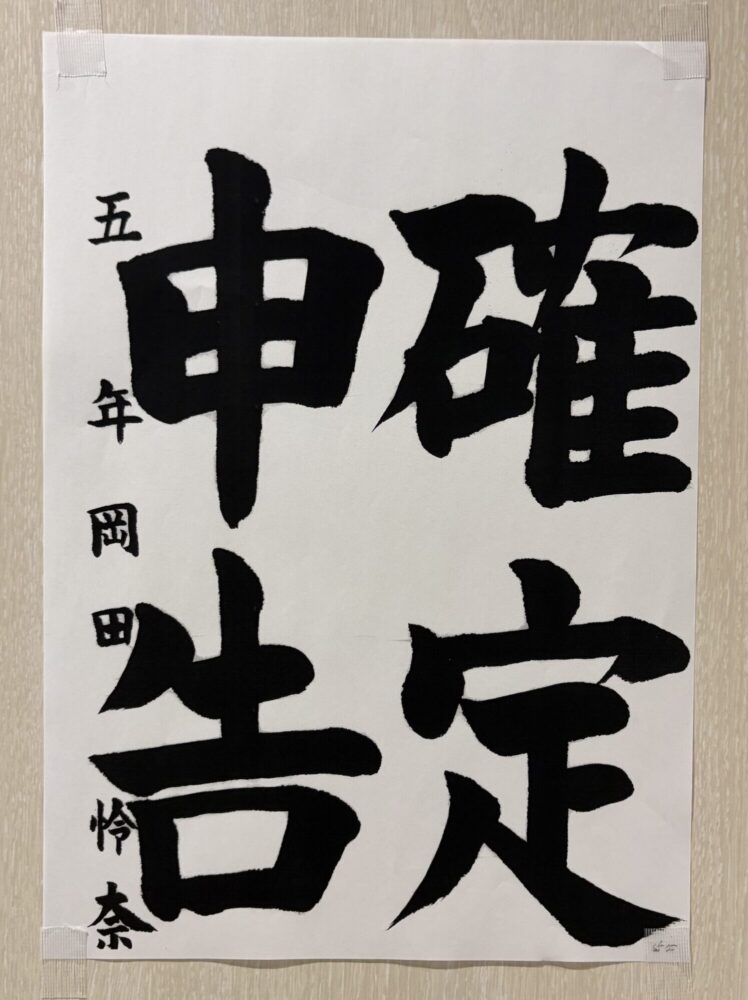 確定
申告
五年岡田怜奈